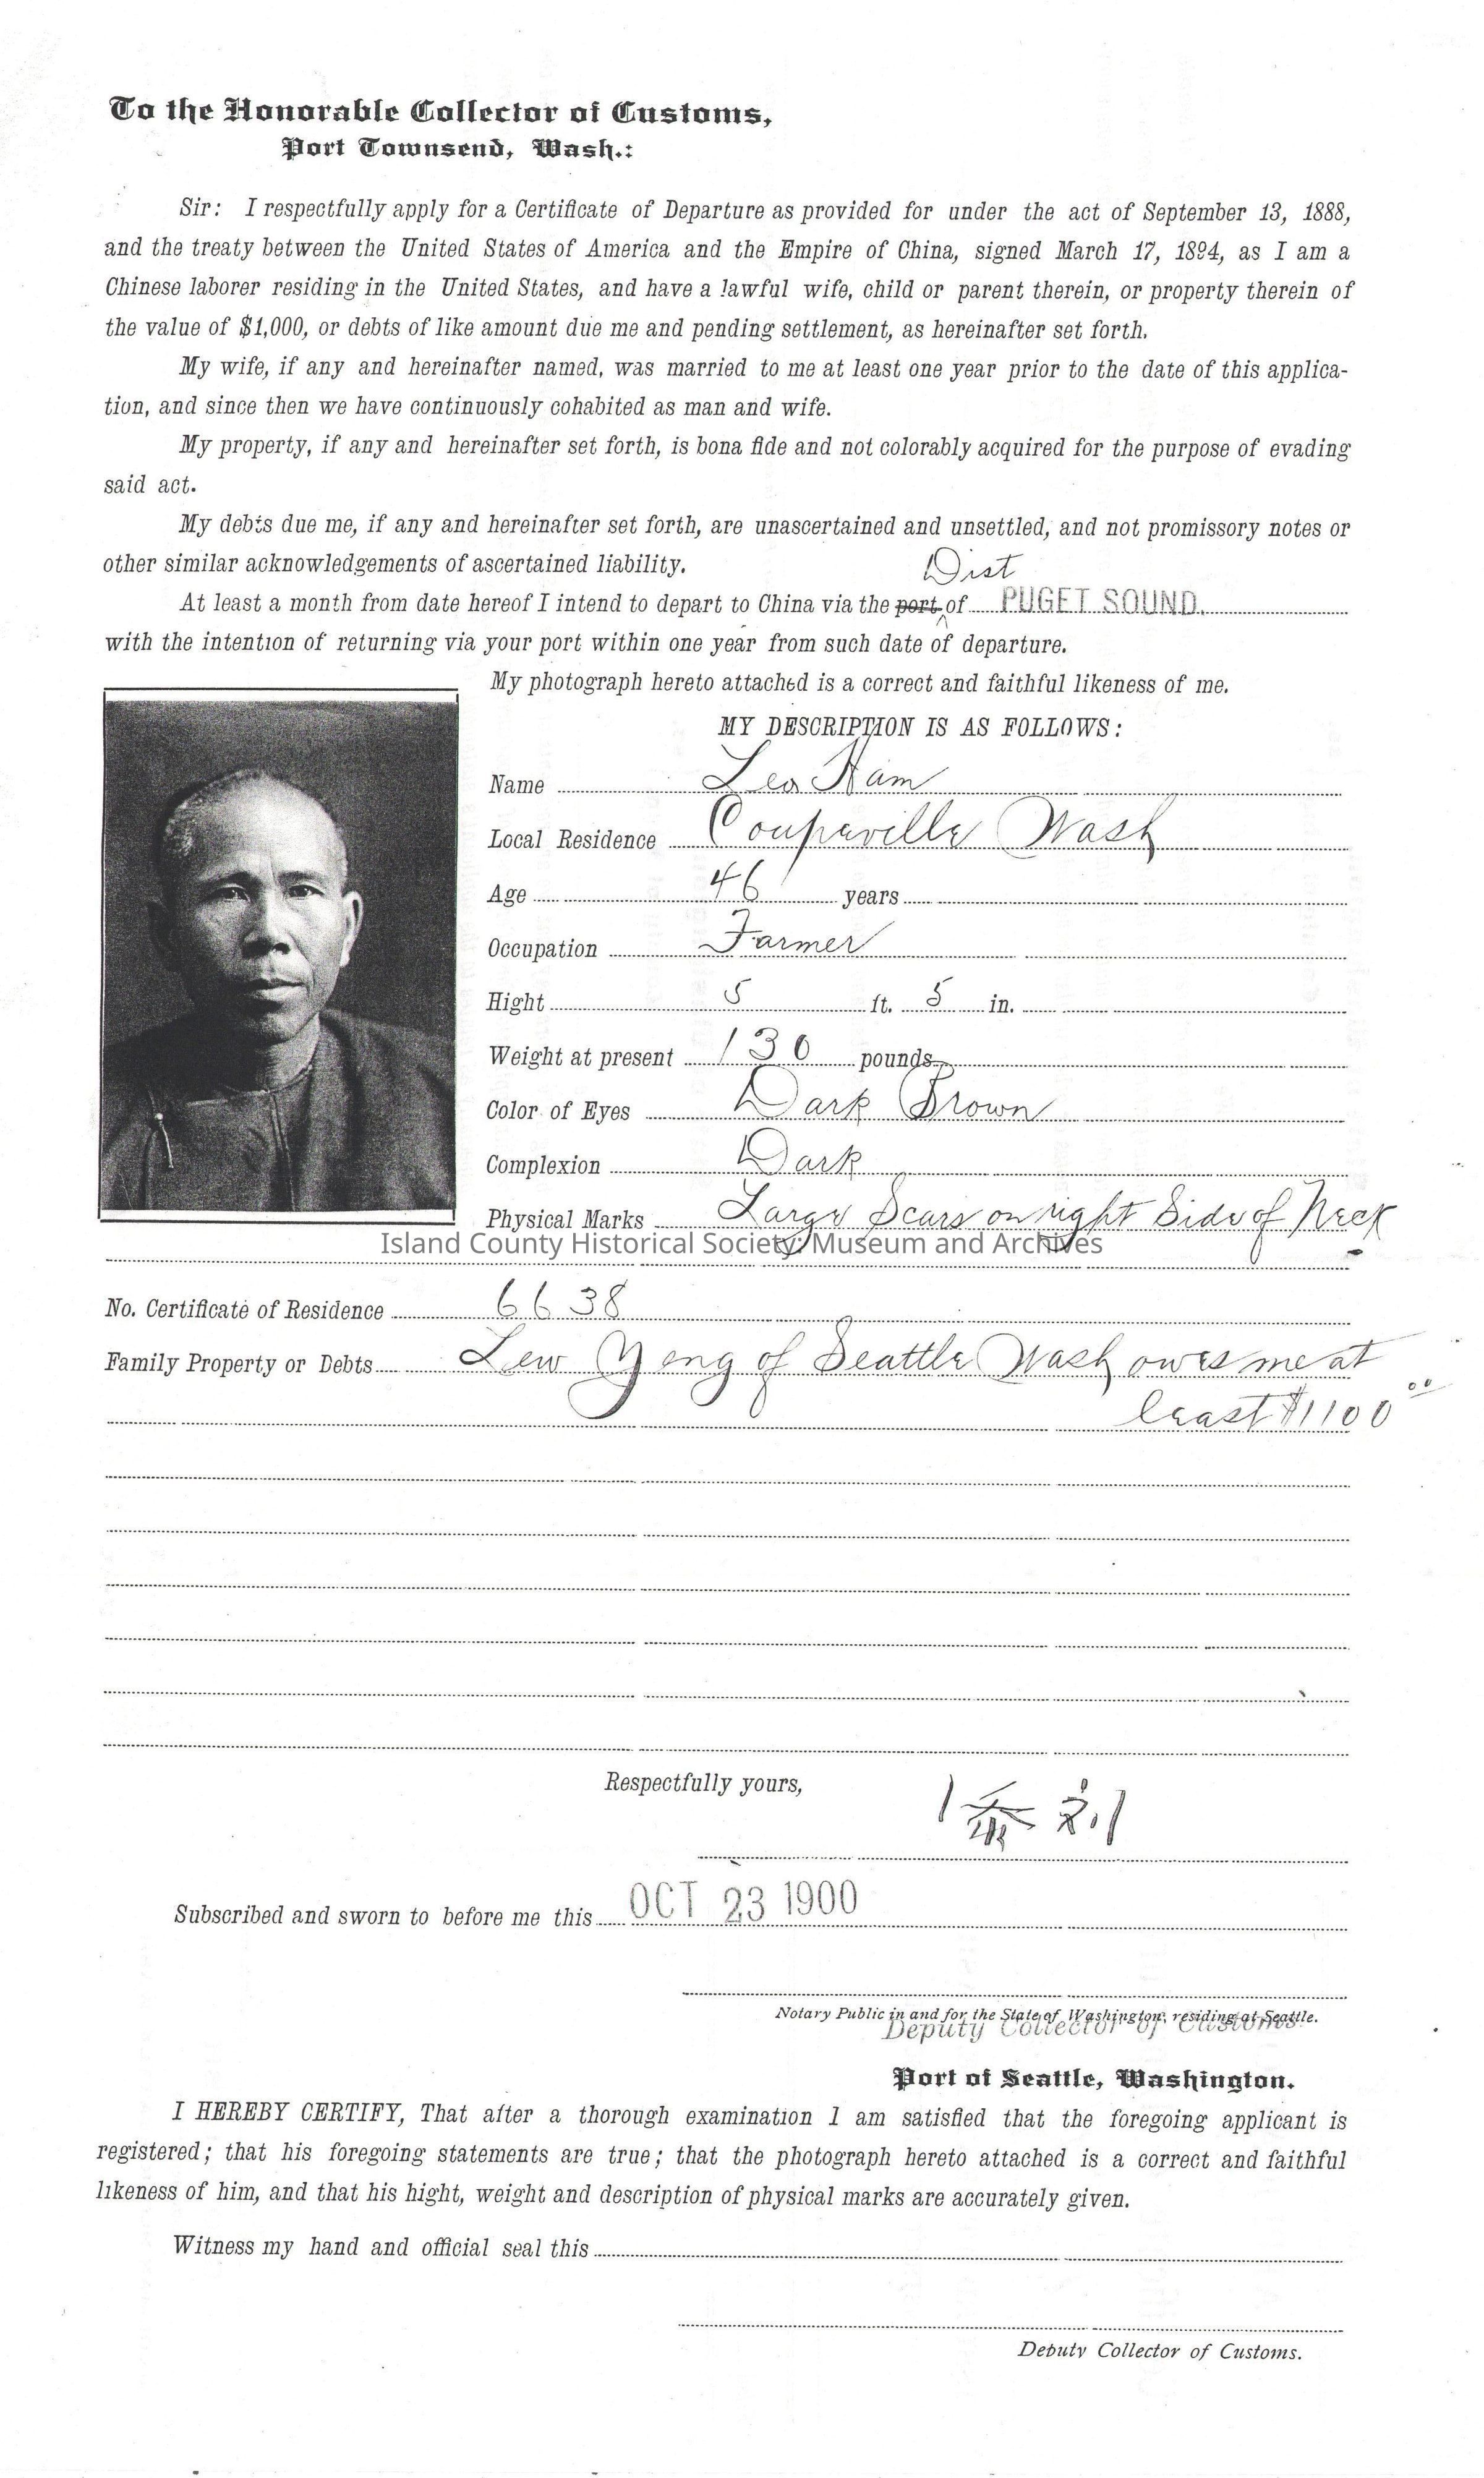 To the Honorable Collector of Customs,
Port Townsend, Wash.:
Sir: I respectfully apply for a Certificate of Departure as provided for under the act of September 13, 1888,
and the treaty between the United States of America and the Empire of China, signed March 17, 1894, as I am a
Chinese laborer residing in the United States, and have a lawful wife, child or parent therein, or property therein of
the value of $1,000, or debts of like amount due me and pending settlement, as hereinafter set forth.
My wife, if any and hereinafter named, was married to me at least one year prior to the date of this applica-
tion, and since then we have continuously cohabited as man and wife.
My property, if any and hereinafter set forth, is bona fide and not colorably acquired for the purpose of evading
said act.
My debts due me, if any and hereinafter set forth, are unascertained and unsettled, and not promissory notes or
other similar acknowledgements of ascertained liability.
Dist
At least a month from date hereof I intend to depart to China via the port of PUGET SOUND.
with the intention of returning via your port within one year from such date of departure.
My photograph hereto attached is a correct and faithful likeness of me.
MY DESCRIPTION IS AS FOLLOWS:
Name Leo Ham
Local Residence Coupeville Wash
Age 46 years
Occupation Farmer
Hight 5 ft. 5 in.
Weight at present 130 pounds
Color of Eyes Dark Brown
Complexion Dark
Physical Marks Large Scars on right Side of Neck
Island County Historical Society: Museum and Archives
No. Certificate of Residence 6638
Family Property or Debts Lew Yeng of Seattle Wash owes me at
least $1100 00
Respectfully yours,
Subscribed and sworn to before me this OCT 23 1900
Notary Public in and for the State of Washington, residing at Seattle.
Deputy Collector of Customs.
Port of Seattle, Washington.
I HEREBY CERTIFY, That after a thorough examination I am satisfied that the foregoing applicant is
registered; that his foregoing statements are true; that the photograph hereto attached is a correct and faithful
likeness of him, and that his hight, weight and description of physical marks are accurately given.
Witness my hand and official seal this
Deputy Collector of Customs.